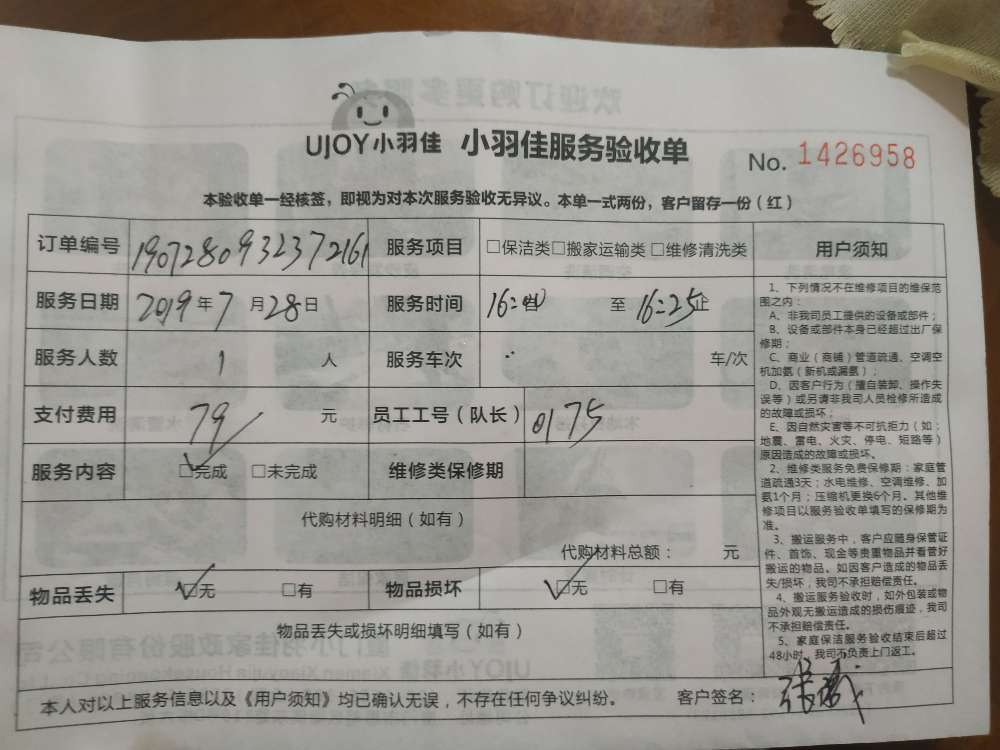 UJOY小羽佳 小羽佳服务验收单 No. 1426958
本验收单一经核签，即视为对本次服务验收无异议。本单一式两份，客户留存一份（红）
订单编号 1907280932372161 服务项目 □保洁类□搬家运输类 □维修清洗类
服务日期 2019年7月28日 服务时间 16: 至 16:25
服务人数 1 人 服务车次 车/次
支付费用 79 元 员工工号（队长） 0175
服务内容 ☑完成 □未完成 维修类保修期
代购材料明细（如有）
代购材料总额： 元
物品丢失 ☑无 □有 物品损坏 ☑无 □有
物品丢失或损坏明细填写（如有）
用户须知
1、下列情况不在维修项目的维保范
围之内：
A、非我司员工提供的设备或部件；
B、设备或部件本身已经超过出厂保
修期；
C、商业（商铺）管道疏通、空调空
机加氨（新机或漏氨）；
D、因客户行为（擅自装卸、操作失
误等）或另请非我司人员检修所造成
的故障或损坏；
E、因自然灾害等不可抗拒力（如：
地震、雷电、火灾、停电、短路等）
原因造成的故障或损坏。
2、维修类服务免费保修期：家庭管
道疏通3天；水电维修、空调维修、加
氨1个月；压缩机更换6个月。其他维
修项目以服务验收单填写的保修期为
准。
3、搬运服务中，客户应随身保管证
件、首饰、现金等贵重物品并看管好
搬运的物品。如因客户造成的物品丢
失/损坏，我司不承担赔偿责任。
4、搬运服务验收时，如外包装或物
品外观无搬运造成的损伤痕迹，我司
不承担赔偿责任。
5、家庭保洁服务验收结束后超过
48小时，我司不负责上门返工。
本人对以上服务信息以及《用户须知》均已确认无误，不存在任何争议纠纷。 客户签名： 张